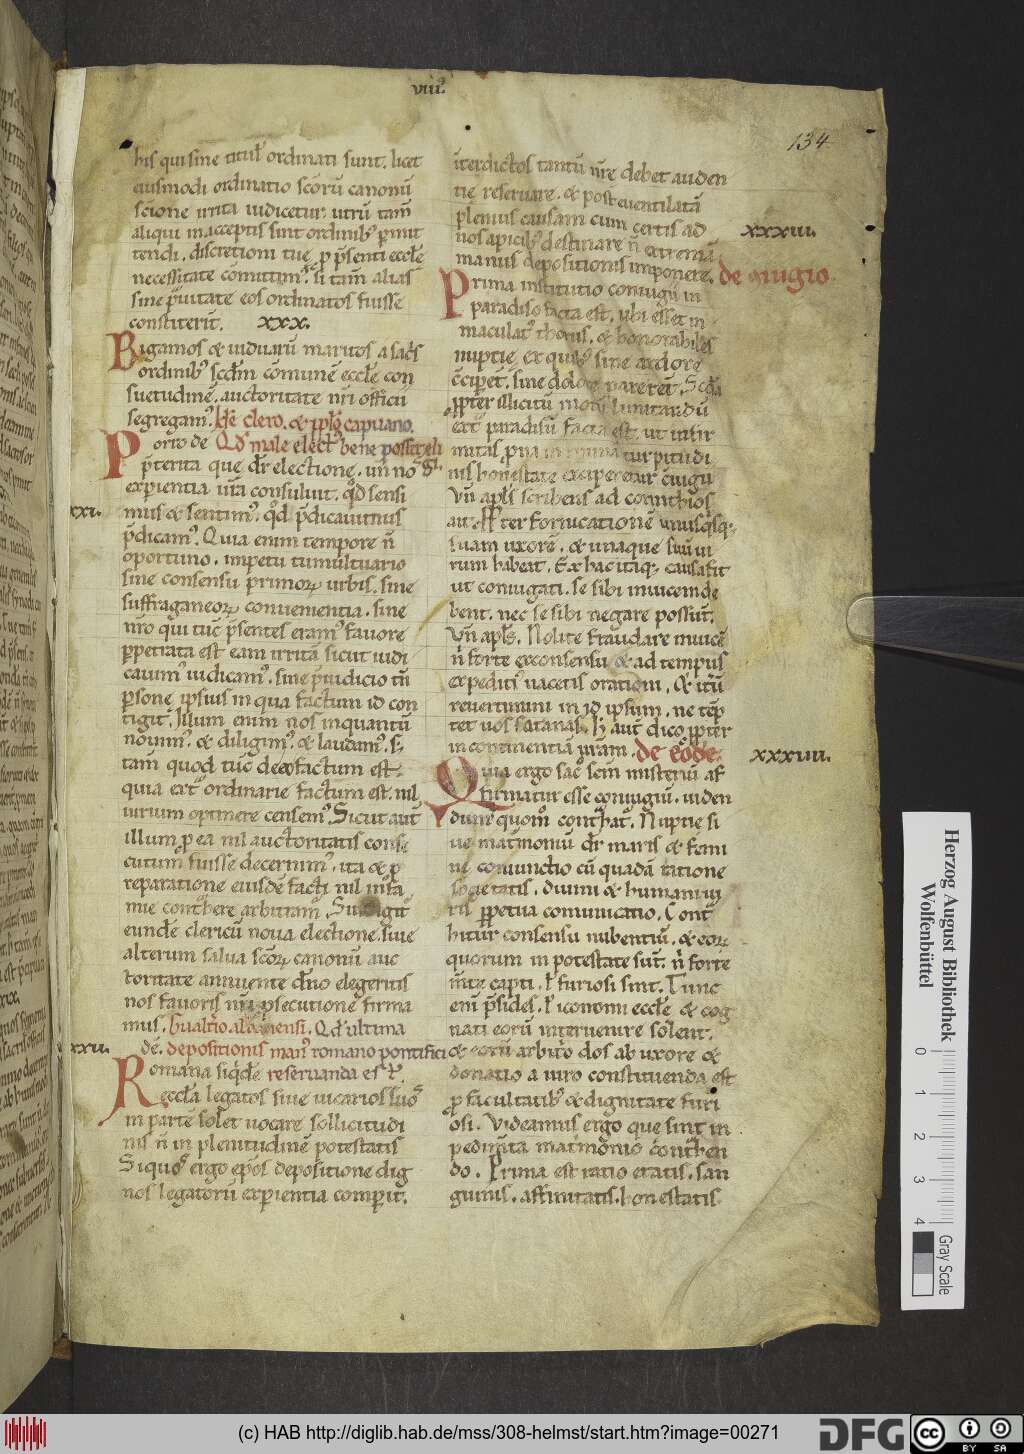 viii.
134
his qui sine titul' ordinati sunt. licet
eiusmodi ordinatio scōrū canonū
irrita iudicetur. utrū tam̄
aliqui in acceptis sint ordinib; p̄mit
tendi. discretioni tue p̄ p̄senti eccl'e
necessitate cōmittim'. si tam̄ alias
sine p̄uitate eos ordinatos fuisse
constiterit. xxx.
Bigamos & uiduarū maritos a sac̄s
ordinib; scdm cōmunē eccl'e con
suetudinē. auctoritate nr̄i officii
segregam'. clero. & capuano.
Porro de Qd male elect' bene possit eli
p̄terita que dr̄ electione. un̄ nō gi.
experientia ur̄a consuluit. qd sensi
xxxi. mus & sentim'. qd p̄dicauimus
p̄dicam'. Quia enim tempore n̄
oportuno. impetu tumultuario
sine consensu primorꝝ urbis. sine
suffraganeorꝝ conuenientia. sine
nr̄o qui tūc p̄sentes eram' fauore
ꝑpetrata est eam irritā sicut iudi
cauim' iudicam'. sine p̄iudicio tn̄
ꝑsone ipsius in qua factum id con
tigit. Illum enim nos in quantū
nouim'. & diligim'. & laudam'. s;
tam̄ quod tūc de eo factum est.
quia ext̄ ordinarie factum est. nil
uirium optinere censem'. Sicut aut̄
illum p̄ ea nil auctoritatis conse
cutum fuisse decernim'. ita & p̄
reparatione eiusdē facti nil infa
mie cont̄here arbitram'. Siu igit'
eundē clericū noua electione. siue
alterum salua scōrꝝ canonū auc
toritate annuente dn̄o elegeritis
nos fauoris nr̄i ꝓsecutione firma
mus. Qd' ultima
xxxii. dē. depositionis man' romano pontifici
Romana siq̄dē reseruanda est.
eccl'a legatos siue uicarios suos
in partē solet uocare sollicitudi
nis n̄ in plenitudinē potestatis
Si quos ergo ep̄os depositione dig
nos legatorū experientia comꝑit.
int̄dictos tantū nr̄e debet auden
tie reseruare. & post euentilatā
plenius causam cum certis ad
nos apicib; destinare n̄ extremā xxxiii.
manus depositionis imponere. de c̄iugio.
Prima institutio coniugii in
paradiso facta est. ubi esset in
maculat' thorus. & honorabiles
nuptie. ex quib; sine ardore
c̄ciꝑet. sine dolore pareret. Scd'a
ꝓpter illicitū motū limitandū
ext̄ paradisū facta est. ut infir
mitas ꝓna in turpitudi
nis honestate exciperetur c̄iugii
Un̄ apl's scribens ad corinthios
ait. ꝓpter fornicationē unusq̄sq;
suam uxorē. & unaque suū ui
rum habeat. Ex hac itaq; causa fit
ut coniugati. se sibi inuicem de
bent. nec se sibi negare possūt.
Un̄ apl's. Nolite fraudare inuicē
n̄ forte ex consensu & ad tempus
expediti uacetis orationi. & itērū
reuertimini in id ipsum. ne tēp
tet uos satanas. h̄ aut̄ dico ꝓpter
incontinentiā ur̄am. de eōde. xxxiiii.
Quia ergo sac̄ scīm misteriū af
firmatur esse coniugiū. uiden
dum quom̄ cont̄hat'. Nuptie si
ue mat̄moniū dr̄ maris & femi
ne coniunctio cū quadā ratione
societatis. diuini & humani iu
ris ꝑpetua comunicatio. Cont̄
hitur consensu nubentiū. & eorꝝ
quorum in potestate sūt. n̄ forte
m̄te capti. l' furiosi sint. Tunc
eni p̄sides. l' iconomi eccl'e & cog
nati eorū interuenire solent.
& eorū arbit̄o dos ab uxore &
donatio a uiro constituenda est
p̄ facultatib; & dignitate furi
osi. Videamus ergo que sint in
pedim̄ta mat̄monio cont̄hen
do. Prima est ratio etatis. san
guinis. affinitatis. honestatis.
Herzog August Bibliothek
Wolfenbüttel
0 1 2 3 4
Gray Scale
(c) HAB http://diglib.hab.de/mss/308-helmst/start.htm?image=00271
DFG
cc
BY SA